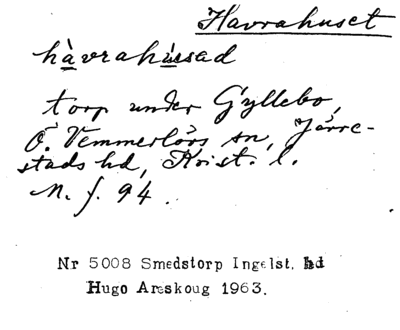 Havrahuset
hàvrahússad
torp under Gyllebo,
Ö. Vemmerlövs sn, Järre-
stads hd, Krist. l.
M. f. 94.
Nr 5008 Smedstorp Ingelst. hd
Hugo Areskoug 1963.